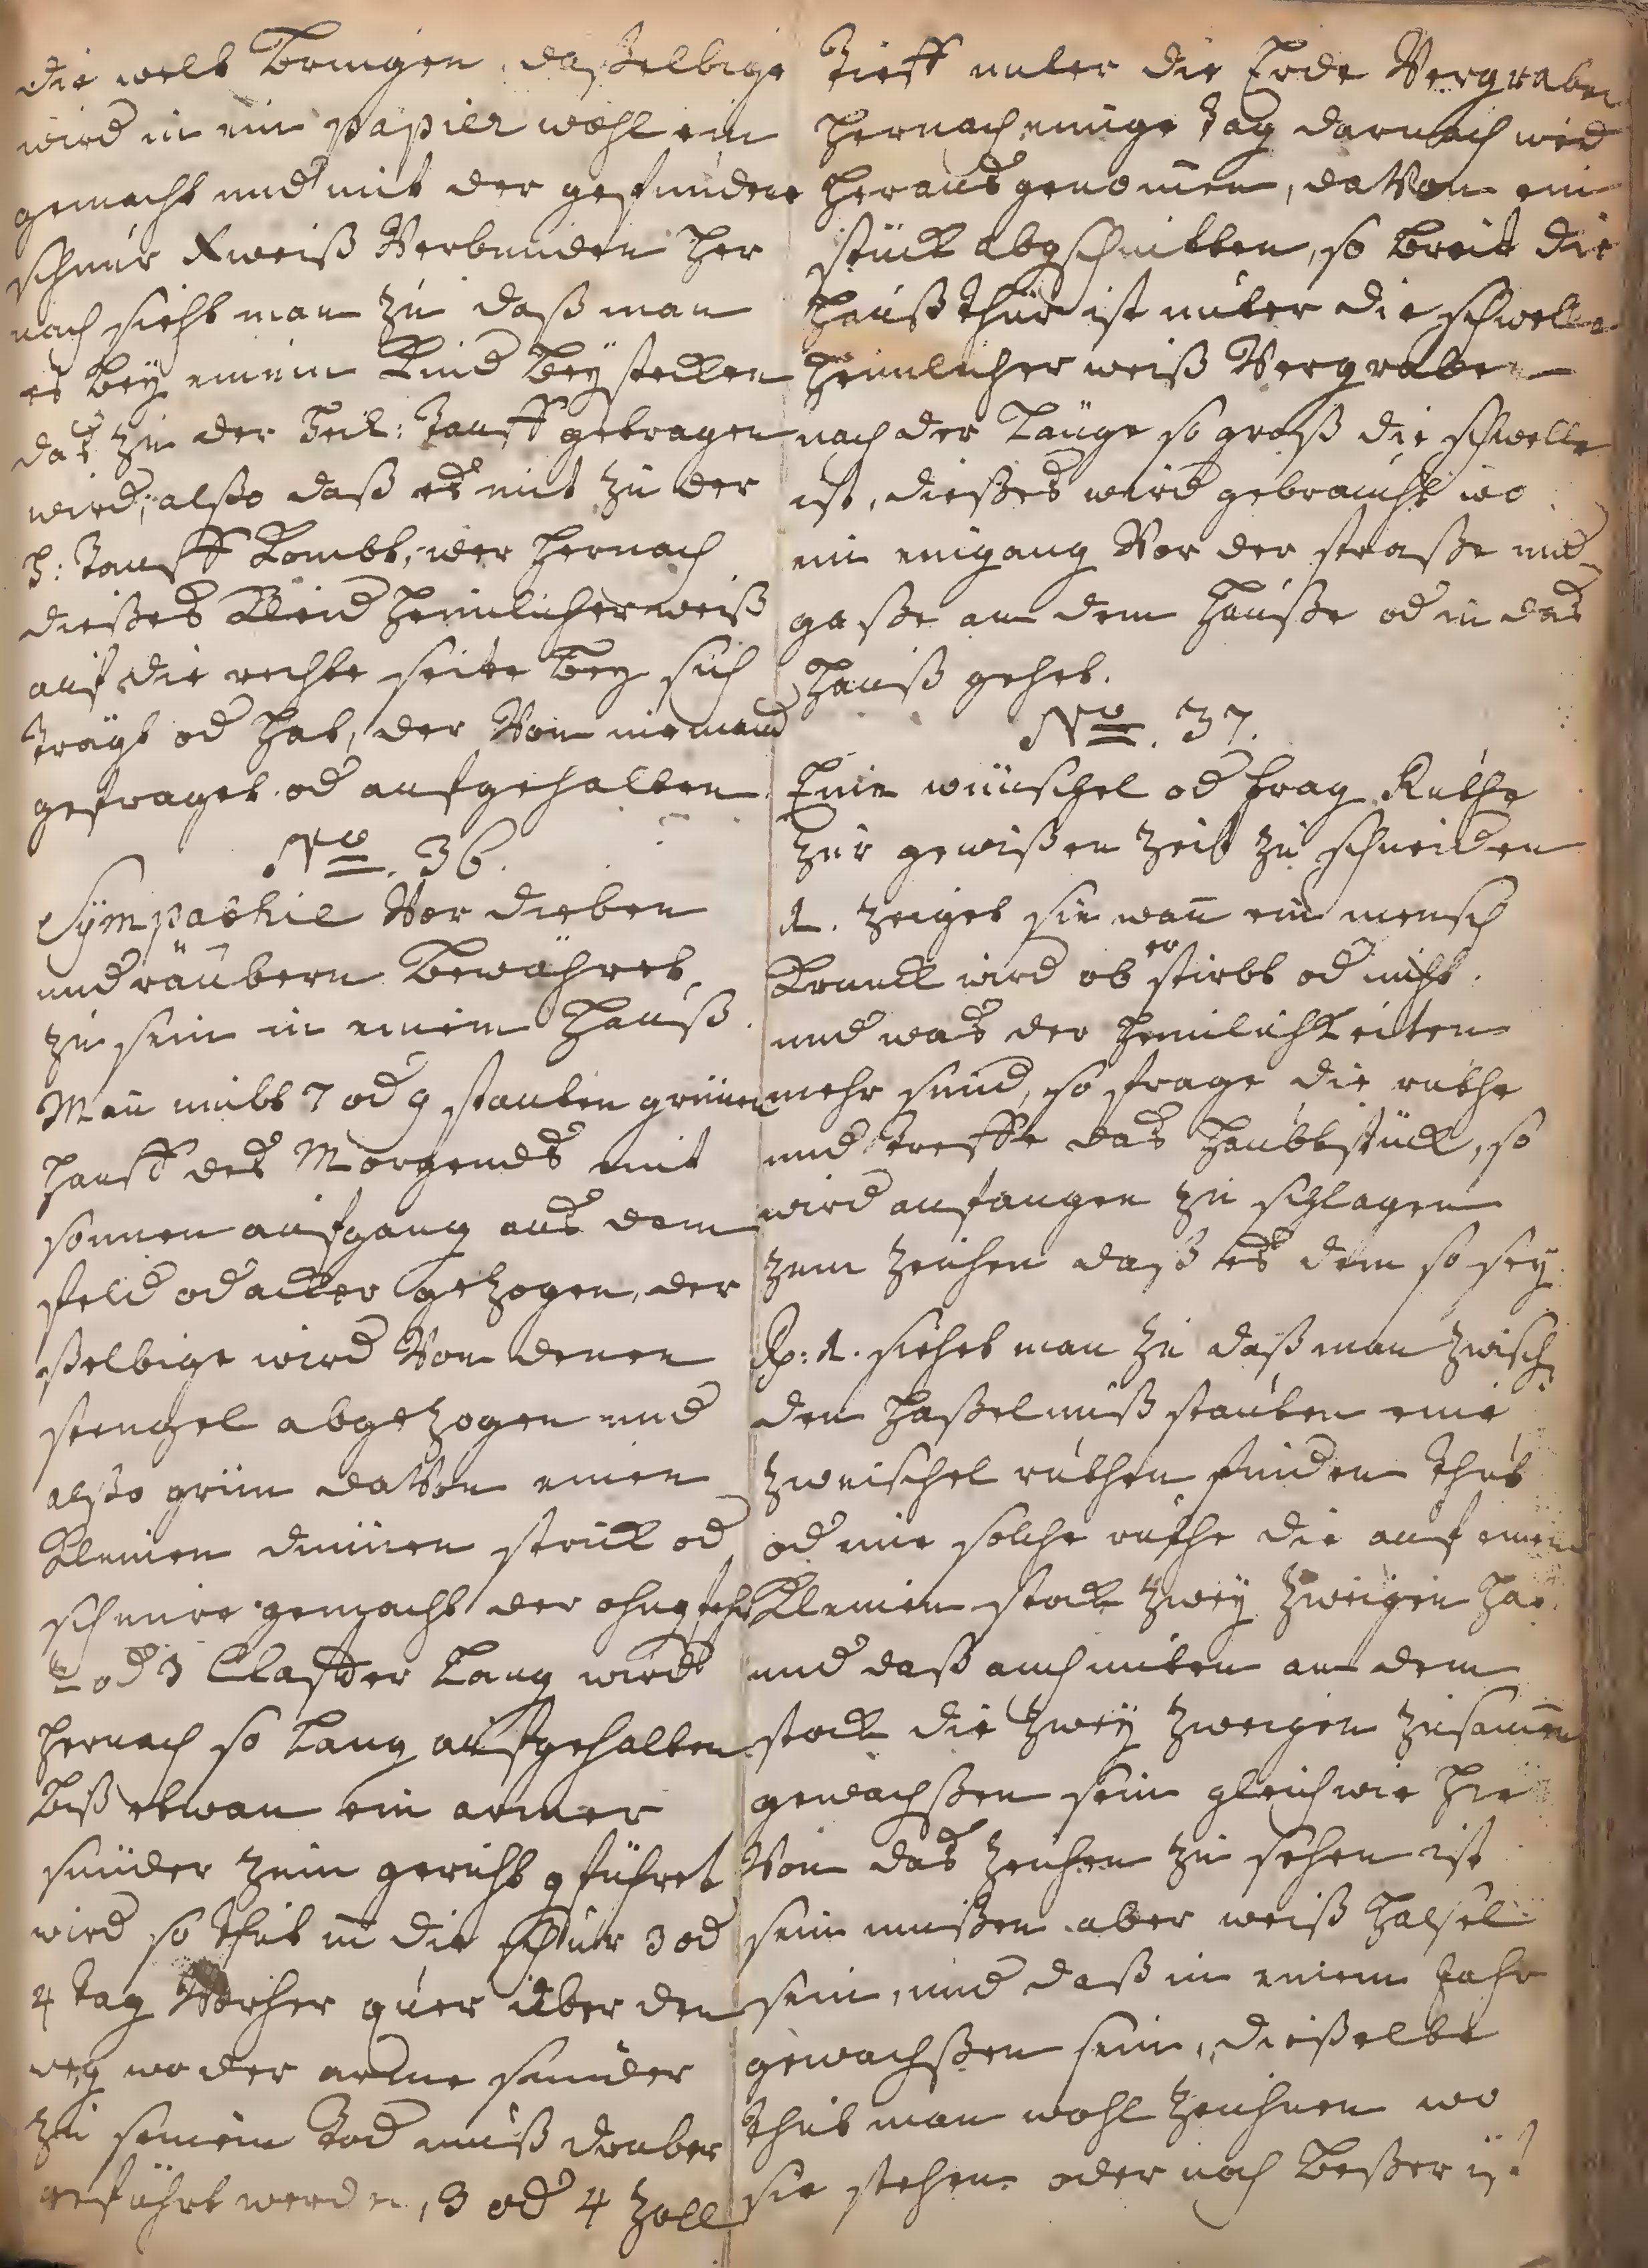 die welt bringen, daßelbige
wird in ein papier wohl ein
gemacht und mit der gefundene
schnur Xweiß Verbunden her
nach sieht man zu daß man
es bey einem Kind bey stecken
das zu der Heil: Tauff getragen
wird, alßo daß es mit zu der
H: Tauff Kombt, wer hernach
dießes Kleid heimlicherweiß
auf die rechte seite bey sich
Trägt od hat, der Von niemand
gefraget od aufgehalten
No. 36.
Sympathie Vor dieben
und räubern bewähret
zu sein in einem Hauß.
Man nimbt 7 od 9 stauten grünen
Hanff des Morgends mit
sonnen aufgang aus dem
feld od acker gezogen, der
ßelbige wird Von denen
stengel abgezogen und
alßo grün daVon einen
Kleinen dünnen strick od
schnure gemacht der ohngfehr
2 od 3 Claffter Lang wird
hernach so Lang aufgehalten
biß etwan ein armer
sünder zum gericht gführet
wird so thut m die schnur 3 od
4 tag Vorher quer über den
weg wo der arme sünder
zu seinem tod muß drüber
geführt werden, 3 od 4 zoll
Tieff unter die Erde Vergraben
hernach einige tag darnach wid
heraus genommen, daVon ein
stück abgschnitten, so breit die
Haußthür ist unter die schwelle
heimlicher weiß Vergraben
nach der Länge so groß die schwelle
ist, dießes wird gebraucht wo
ein eingang Vor der straße und
gaße an dem Hauße od in das
Hauß gehet.
No. 37.
Eine wünschel od frag Ruthe
zur gewißen zeit zu schneiden
1. zeiget sie wann ein mensch
Kranck wird ob er stirbt od nicht.
und was der heimlichkeiten
mehr sind, so frage die ruthe
und treffe das Haubtstück, so
wird anfangen zu schlagen
zum zeichen daß es dem so sey.
Rp: 1. siehet man zu daß man zwisch
den Haßelnuß stauten eine
zwischel ruthen finden thut
od eine solche ruthe die auf einem
Kleinen stock zwey zweigen hat
und daß auch unten an dem
stock die zwey zweigen zusammen
gewachßen sein gleich wie hie
Von das zeichen zu sehen ist
sein müßen aber weiß Haßel
sein, und daß in einem Jahr
gewachßen sein, dießelbe
thut man wohl zeichnen wo
sie stehen oder noch beßer ist